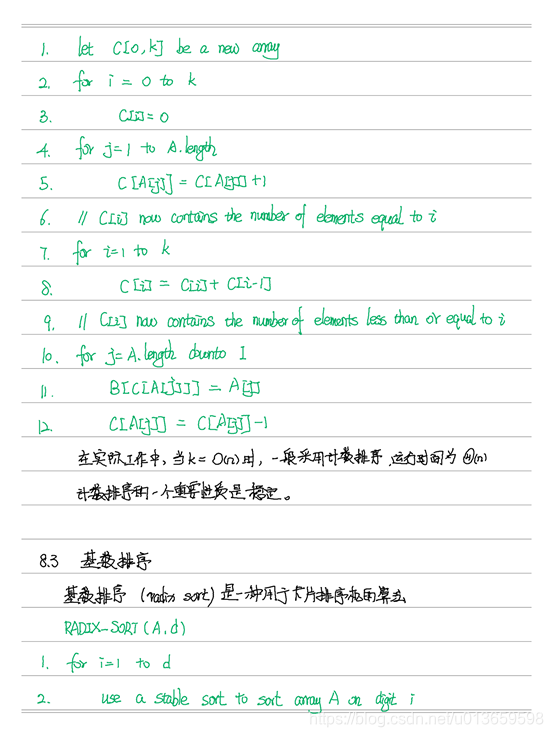 1. let C[0,k] be a new array
2. for i = 0 to k
3. C[i]=0
4. for j=1 to A.length
5. C[A[j]] = C[A[j]]+1
6. // C[i] now contains the number of elements equal to i
7. for i=1 to k
8. C[i] = C[i]+ C[i-1]
9. // C[i] now contains the number of elements less than or equal to i
10. for j=A.length downto 1
11. B[C[A[j]]] = A[j]
12. C[A[j]] = C[A[j]]-1
在实际工作中,当k=O(n)时,一般采用计数排序,运行时间为Θ(n)
计数排序的一个重要性质是稳定。
8.3 基数排序
基数排序 (radix sort) 是一种用于卡片排序机的算法
RADIX-SORT(A,d)
1. for i=1 to d
2. use a stable sort to sort array A on digit i
https://blog.csdn.net/u013659598